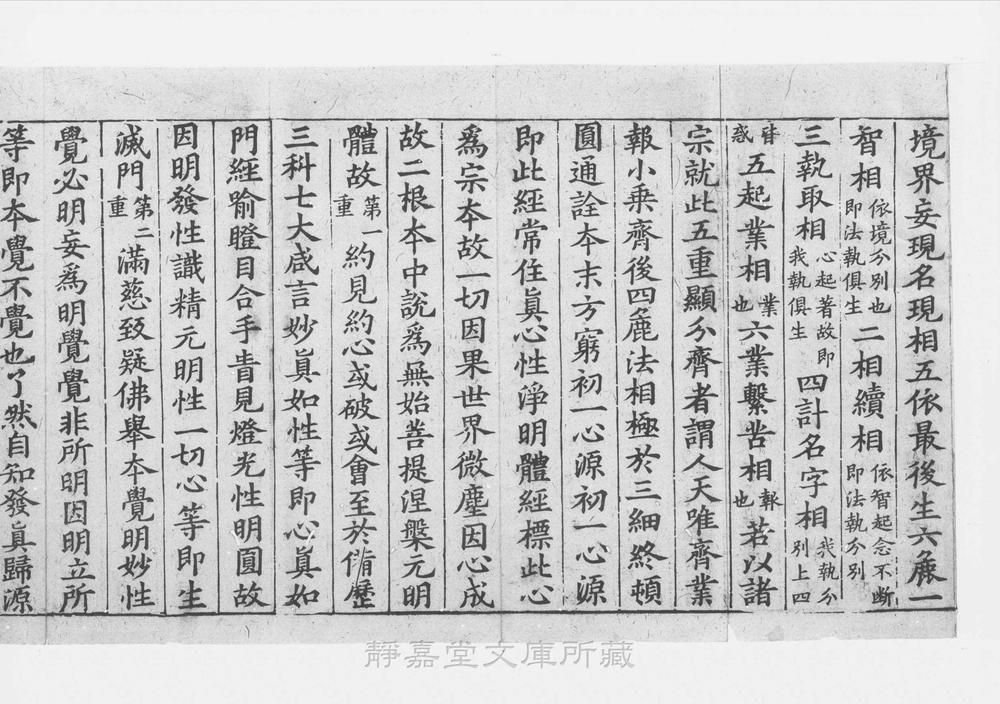 境界妄現名現相五依最後生六麁一
智相依境分別也即法執俱生二相續相依智起念不斷即法執分別
三執取相心起著故即我執俱生四計名字相我執分別上四
皆惑五起業相業也六業繫苦相報也若以諸
宗就此五重顯分齊者謂人天唯齊業
報小乗齊後四麁法相極於三細終頓
圓通詮本末方窮初一心源初一心源
即此經常住眞心性淨明體經標此心
爲宗本故一切因果世界微塵因心成
故二根本中說爲無始菩提涅槃元明
體故第一重約見約心或破或會至於備歷
三科七大咸言妙眞如性等即心眞如
門經喻瞪目合手眚見燈光性明圓故
因明發性識精元明性一切心等即生
滅門第二重滿慈致疑佛舉本覺明妙性
覺必明妄爲明覺覺非所明因明立所
等即本覺不覺也了然自知發眞歸源
靜嘉堂文庫所藏